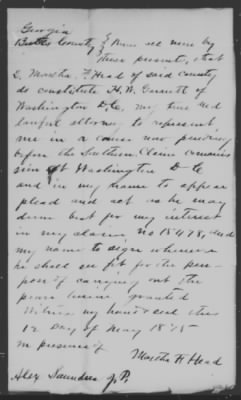 Georgia
Butts County } Know all men by
these present, that
I, Martha F Head of said county
do constitute H. W. Garnett of
Washington D.C. my true and
lawful attorney to represent
me in a cause now pending
before the Southern Claim commis
sion at Washington D C
and in my name to appear
plead and act as he may
deem best for my interest
in my claim no 15478, and
my name to sign whenever
he shall see fit for the pur-
pose of carrying out the
power herein granted
Witness my hand & seal this
12 Day of May 1875
In presence of
Martha F. Head
Alex Saunders J.P.